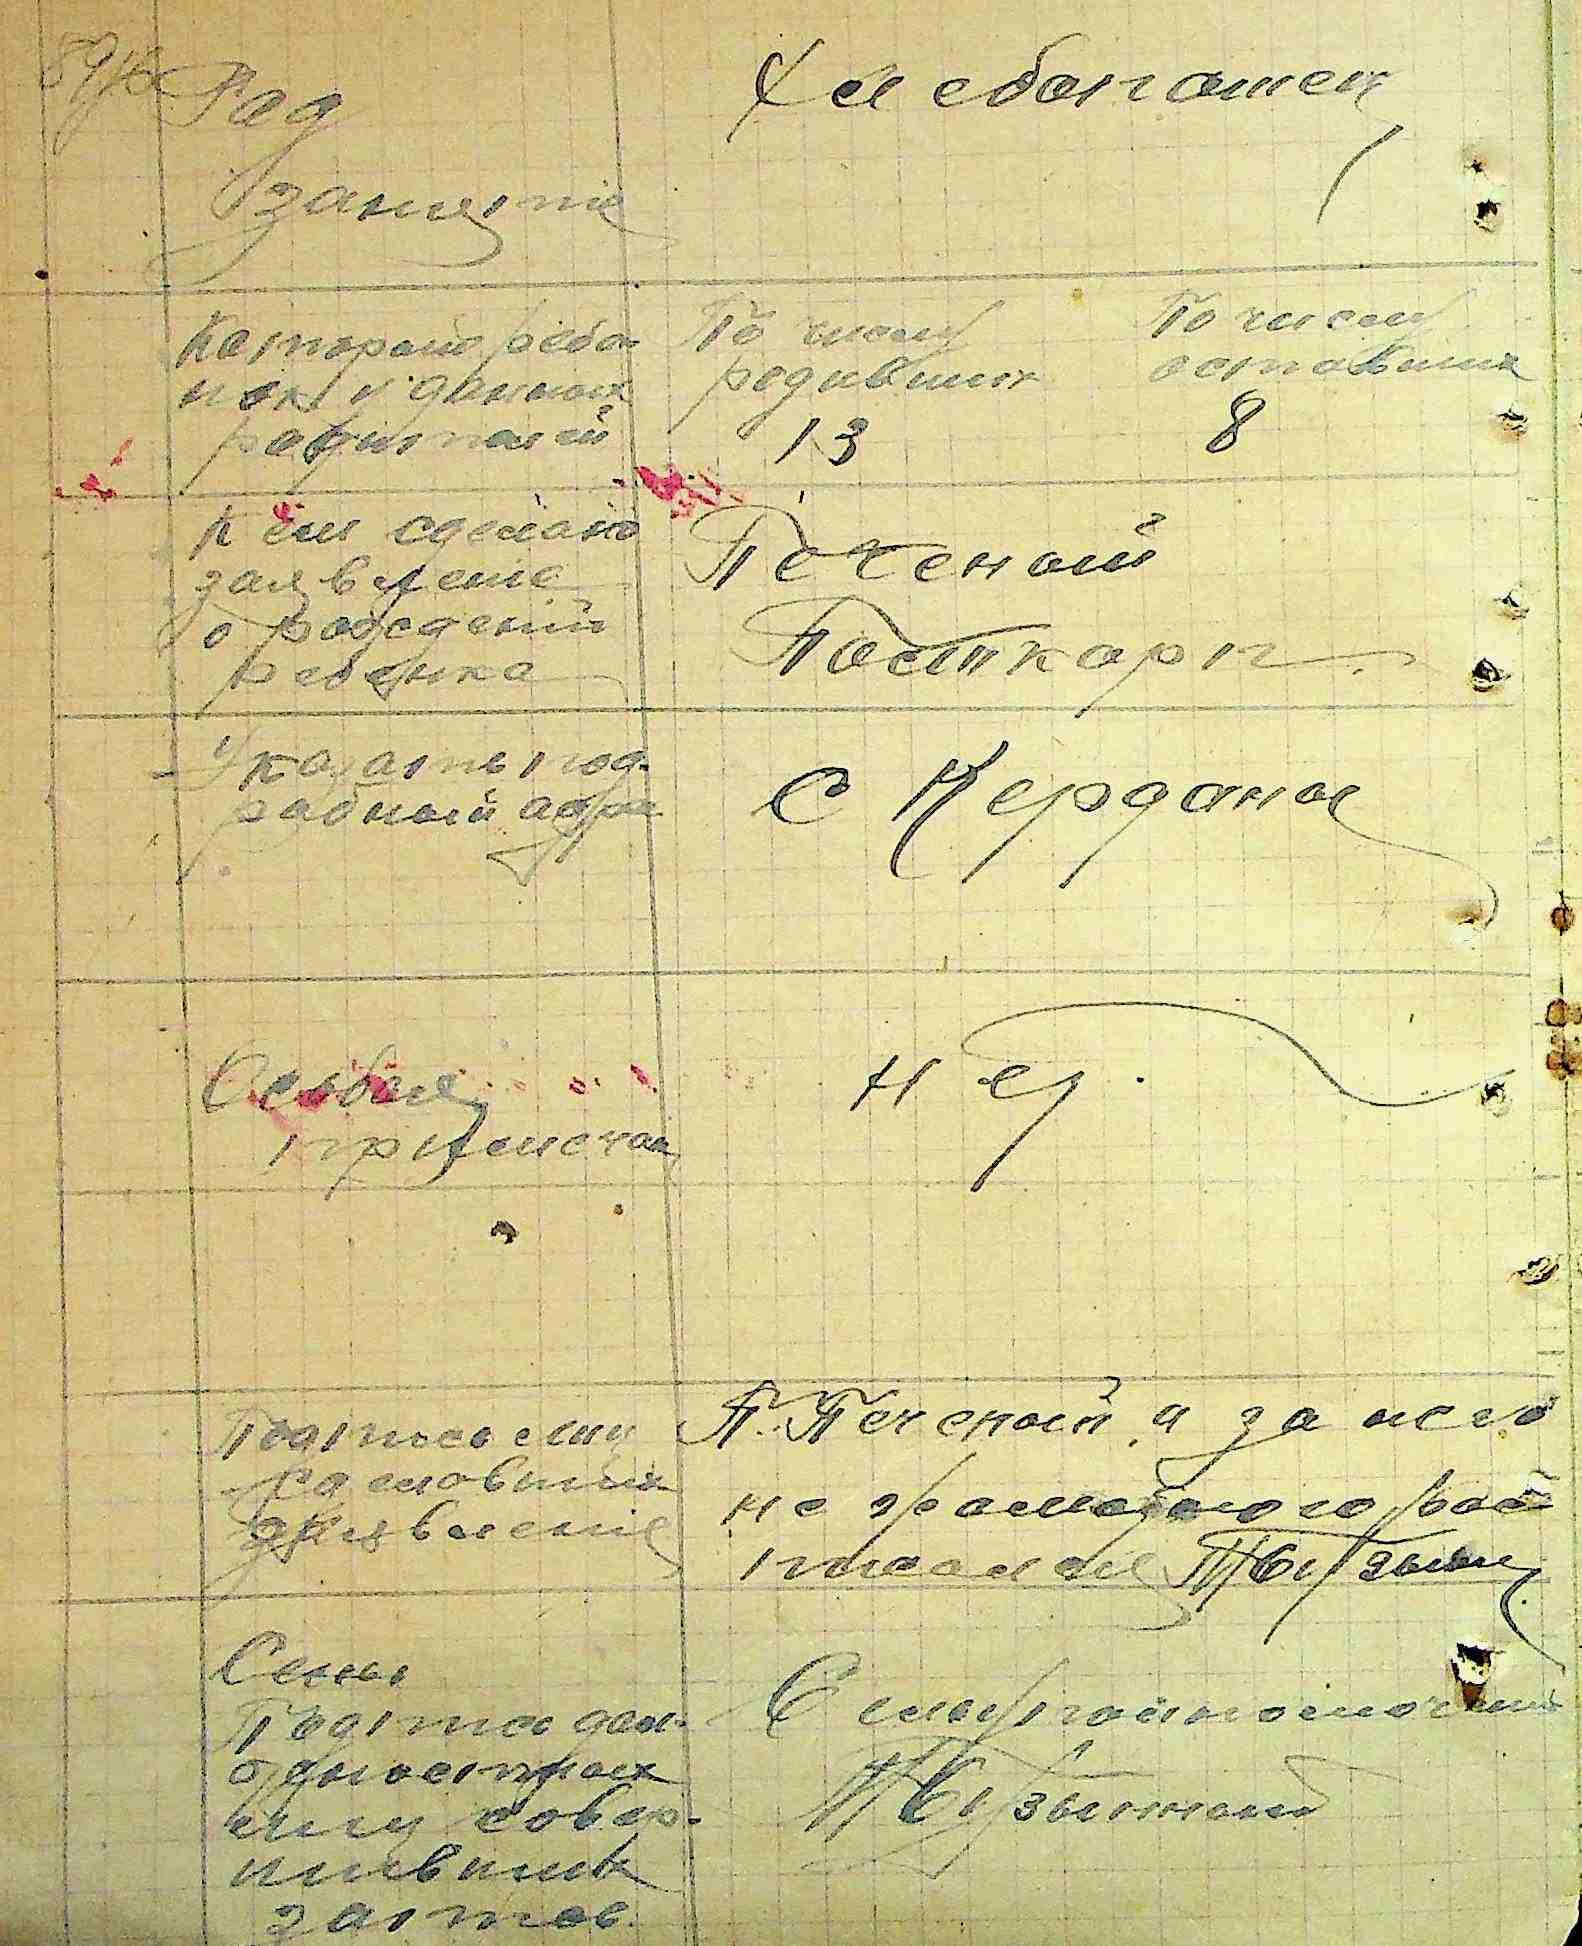 Род
Хлебопашец
занятие
Который ребе-
нок у данных
родителей
По числу
родивших
13
По числу
оставших
8
Кем сделано
заявление
о рождений
ребенка
Печеный
Поликарп
Указать под-
робный адре
с Кердана
Особая
примечан
нет
Подпись лиц
сделавших
заявление
П. Печеный, а за него
не грамотного рос
писался
Подписи дол-
одностных
лиц совер-
шивших
запись